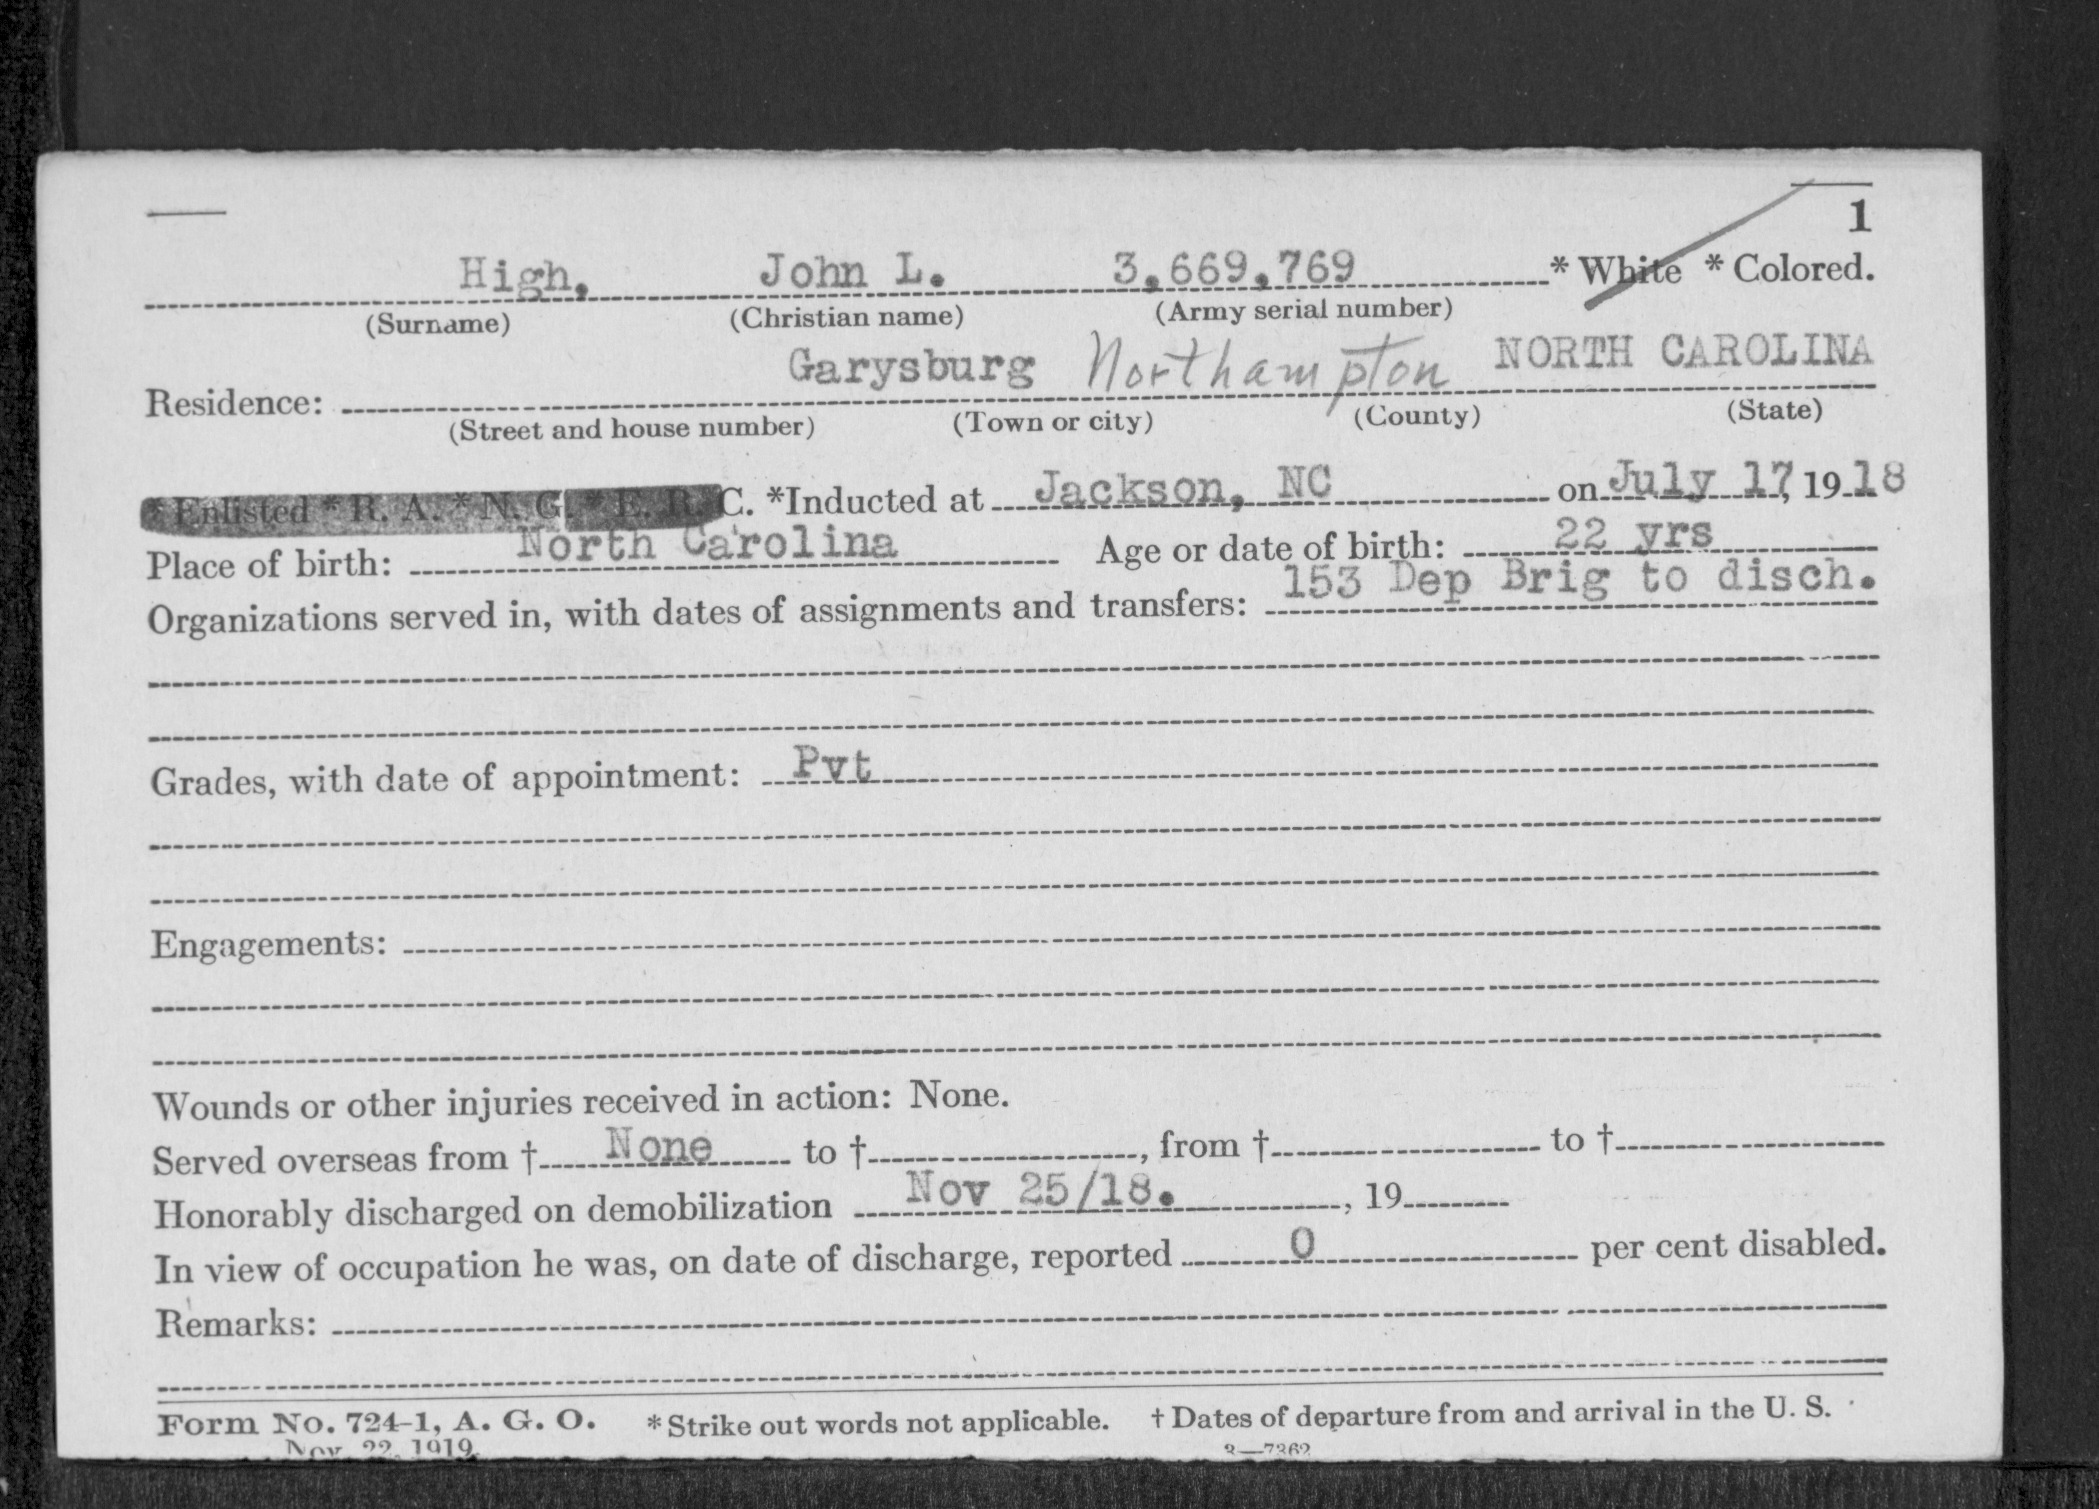 1
High, John L. 3,669,769 * White * Colored.
(Surname) (Christian name) (Army serial number)
Residence: Garysburg Northampton NORTH CAROLINA
(Street and house number) (Town or city) (County) (State)
* Enlisted * R. A. * N. G. * E. R. C. *Inducted at Jackson, NC on July 17, 1918
Place of birth: North Carolina Age or date of birth: 22 yrs
Organizations served in, with dates of assignments and transfers: 153 Dep Brig to disch.
Grades, with date of appointment: Pvt
Engagements:
Wounds or other injuries received in action: None.
Served overseas from † None to †, from † to †
Honorably discharged on demobilization Nov 25/18. , 19
In view of occupation he was, on date of discharge, reported 0 per cent disabled.
Remarks:
Form No. 724-1, A. G. O. * Strike out words not applicable. † Dates of departure from and arrival in the U. S.
Nov. 22, 1919. 3—7362